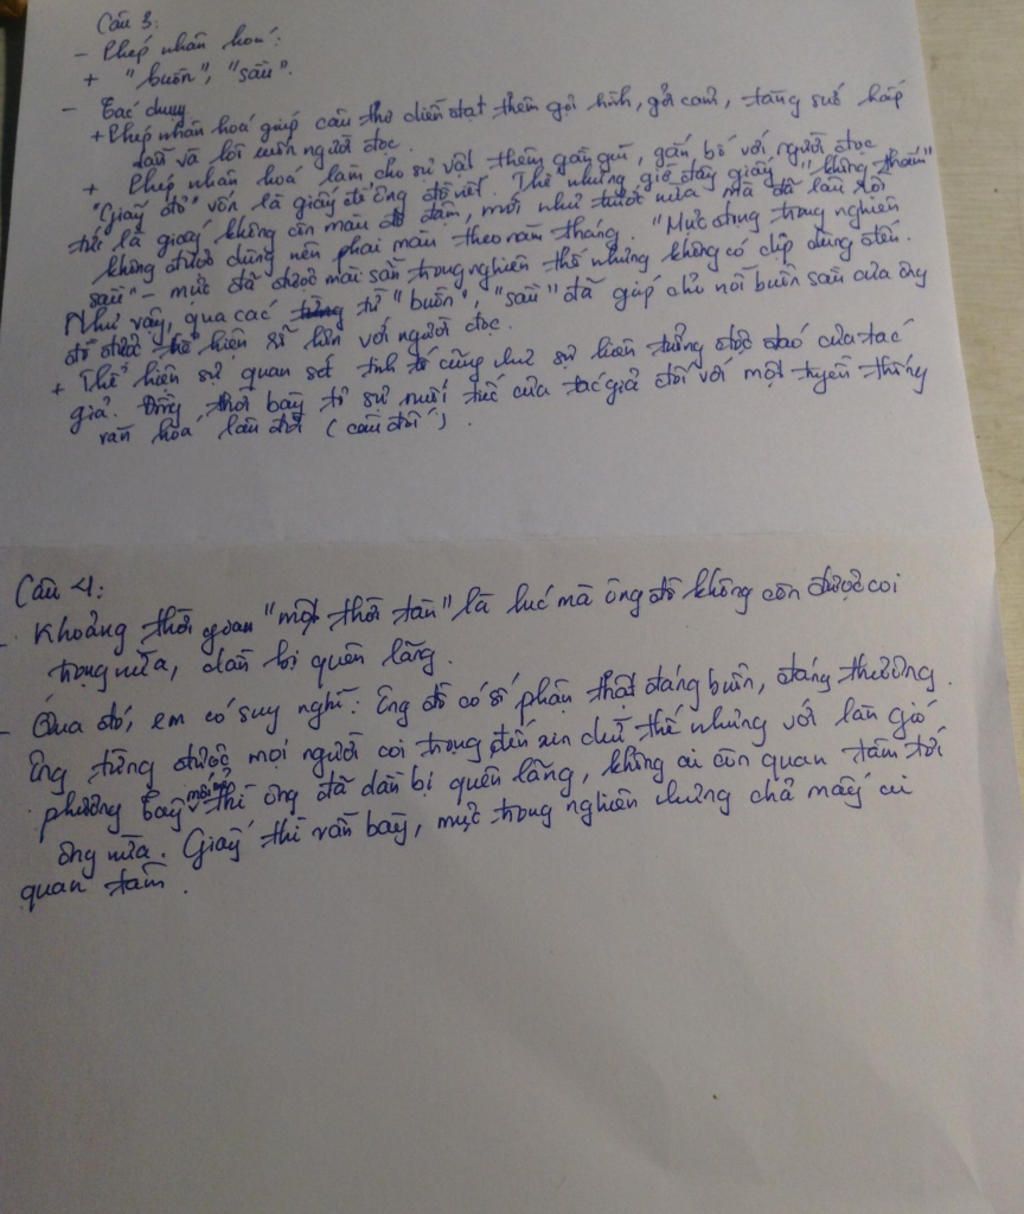 Câu 3:
- Phép nhân hoá:
+ "buồn", "sầu".
- Tác dụng
+ Phép nhân hoá giúp câu thơ diễn đạt thêm gợi hình, gợi cảm, tăng sức hấp
dẫn và lôi cuốn người đọc.
+ Phép nhân hoá làm cho sự vật thêm gần gũi, gắn bó với người đọc
"Giấy đỏ" vốn là giấy để ông đồ viết. Thế nhưng giờ đây giấy "không thắm"
tức là giấy không còn màu đỏ đậm, mới như trước nữa mà đã lâu rồi
không được dùng nên phai màu theo năm tháng. "Mực đọng trong nghiên
sầu" - mực đã được mài sẵn trong nghiên thế nhưng không có dịp dùng đến.
Như vậy, qua các từ "buồn", "sầu" đã giúp cho nỗi buồn sầu của ông
đồ được thể hiện rõ hơn với người đọc.
+ Thể hiện sự quan sát tinh tế cũng như sự liên tưởng độc đáo của tác
giả. Đồng thời bày tỏ sự nuối tiếc của tác giả đối với một truyền thống
văn hoá lâu đời (câu đối).
Câu 4:
- Khoảng thời gian "một thời tàn" là lúc mà ông đồ không còn được coi
trọng nữa, dần bị quên lãng.
- Qua đó, em có suy nghĩ: Ông đồ có số phận thật đáng buồn, đáng thương.
Ông từng được mọi người coi trọng, đến xin chữ thế nhưng với làn gió
phương Tây mới mẻ thì ông đã dần bị quên lãng, không ai còn quan tâm tới
ông nữa. Giấy thì vẫn bày, mực trong nghiên nhưng chả mấy ai
quan tâm.